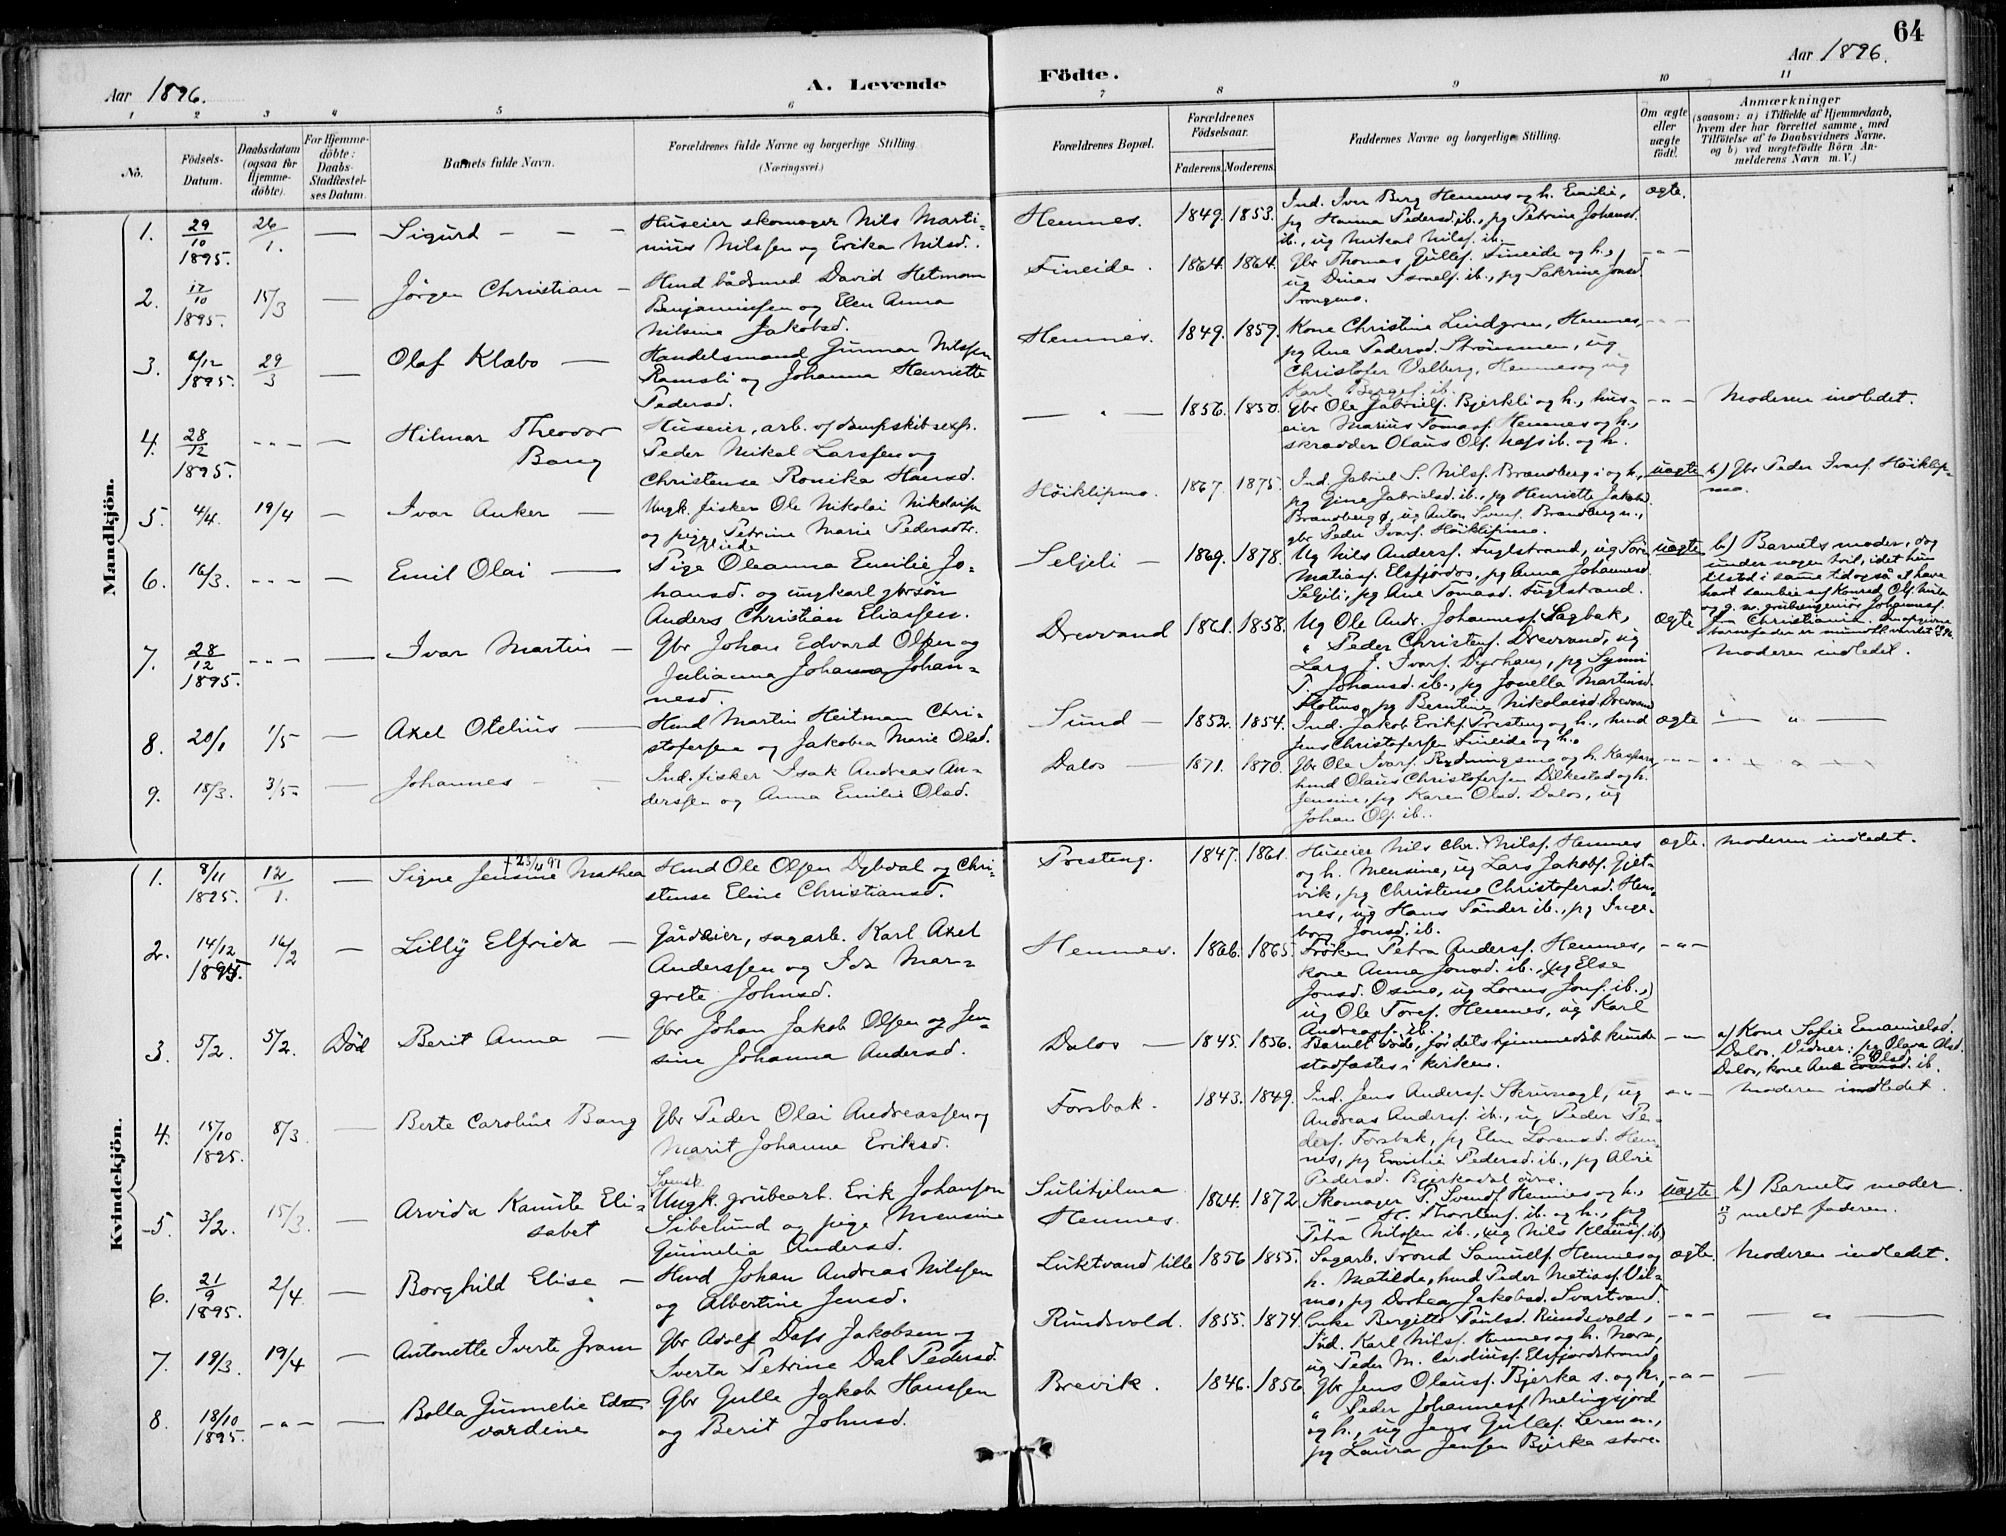 64
Aar 1896.
A. Levende
Födte.
Aar 1896.
1 2 3 4 5 6 7 8 9 10 11
No.
Födsels-
Datum.
Daabsdatum
(ogsaa for
Hjemme-
döbte).
For Hjemme-
döbte:
Daabs-
Stadfæstel-
ses Datum.
Barnets fulde Navn.
Forældrenes fulde Navne og borgerlige Stilling
(Næringsvei.)
Forældrenes Bopæl.
Forældrenes
Födselsaar.
Faderens. Moderens.
Faddernes Navne og borgerlige Stilling.
Om ægte
eller
uægte
födt.
Anmærkninger
(saasom: a) i Tilfælde af Hjemmedaab,
hvem der har forrettet samme, med
Tilföielse af to Daabsvidners Navne,
og b) ved uægtefödte Börn An-
melderens Navn m.V.)
Mandkjön.
1. 29/10 1895. 26/1. — Sigurd — — —
Huseier skomager Nils Marti-
nius Nilssen og Erika Nilsd.
Hemnes. 1849. 1853.
Ind. Iver Berg Hemnes og h. Emilie,
pg Hanna Pedersd. ib., pg Petrine Johansd.
ib., ug Mikal Nilsf. ib.
ægte.
2. 17/10 1895. 15/3 — Jörgen Christian —
Hmd bådsmed David Hetman
Benjaminsen og Elen Anna
Nilsine Jakobsd.
Fineide. 1864. 1864.
Gbr Thomas Gullef. Fineide og h.,
ug Dinas Israelf. ib., pg Sakrine Jonsd.
-"-
3. 6/12 1895. 29/3 — Olaf Klæbo —
Handelsmand Gunnar Nilssen
Ramsli og Johanna Henriette
Pedersd.
Hemnes. 1849. 1859.
Kone Christine Lindgren, Hemnes,
pg Ane Pedersd. Strömmen, ug
Christofer Valberg, Hemnes og ug
Karl Bergef. ib.
-"-
4. 28/12 1895. -"- — Hilmar Theodor
Bang
Huseier, arb. v/ dampskibsexp.
Peder Mikal Larssen og
Christense Ronika Hansd.
— " — 1856. 1850.
Gbr Ole Gabrielf. Bjerkli og h., hus-
eier Marius Tomasf. Hemnes og h.,
skrædder Olaus Olf. Næss ib. og h.
-"- Moderen indledet.
5. 4/4. 19/4 — Ivar Anker —
Ungk. fisker Ole Nikolai Nikolaisen
og pige Petrine Marie Pedersdtr.
Höiklipmo. 1867. 1875.
Ind. Gabriel S. Nilsf. Brandberg i og h.,
pg Gine Gabrielsd. ib., pg Henriette Jakobsd.
Brandberg ø, ug Anton Svenf. Brandberg n.,
gbr Peder Ivarf. Höiklipmo.
uægte b) Gbr Peder Ivarf. Höiklip-
mo.
6. 16/3. -"- — Emil Olai —
Pige Oleanna Emilie Jo-
hansd. og ungkarl gbrsön
Anders Christian Eliassen.
Seljeli — 1869. 1878.
Ug Nils Andersf. Fuglstrand, ug Sör.
Matiasf. Elsfjordos, pg Anna Johannesd.
Seljeli, pg Ane Tomasd. Fuglstrand.
uægte b) Barnets moder, dog
under nogen tvil, idet hun
tilstod i samme tid også at have
havt samleie m/ Konrad Olf.
og g. m. grubeingeniør Johannesf.
fra Christiania.
7. 28/12 1895. -"- — Ivar Martin —
Gbr Johan Edvard Olsen og
Julianna Johanna Johan-
nesd.
Drevvand 1861. 1858.
Ug Ole Andr. Johannesf. Sagbak,
" Peder Christenf. Drevvand, ug
Lars J. Ivarf. Dyrhaug, pg Synni
P. Johansd. ib., pg Jonella Martinsd.
Flotmo, pg Berntine Nikolaisd. Drevvand
ægte Moderen indledet.
8. 20/1 1/5 — Axel Otelius —
Hmd Martin Heitman Chri-
stofersen og Jakobea Marie Olsd.
Sund — 1852. 1854.
Ind. Jakob Erikf. Presteng og h., hmd
Jens Christofersen Fineide og h.
ægte — " —
9. 18/3. 3/5. — Johannes
Ind. fisker Isak Andreas An-
derssen og Anna Emilie Olsd.
Dalos — 1871. 1870.
Gbr Ole Ivarf. Rydningsmo og h. Kaspara,
hmd Olaus Christofersen Dilkestad og h.
Jensine, pg Karen Olsd. Dalos, ug
Johan Olf. ib.
-"- " " " "
Kvindekjön.
1. 8/11 1895. 12/1. — Signe Jensine Mathea
† 25/4 97
Hmd Ole Olsen Dybdal og Chri-
stense Eline Christiansd.
Presteng. 1847. 1861.
Huseier Nils Chr. Nilsf. Hemnes
og h. Mensine, ug Lars Jakobf. Gjet-
vik, pg Christense Christofersd. Hem-
nes, ug Hans Tönder ib., pg Inge-
borg Jonsd. ib.
ægte. Moderen indledet.
2. 14/12 1895. 16/2 — Lilly Elfrida —
Gårdeier, sagarb. Karl Axel
Anderssen og Ida Mar-
grete Johnsd.
Hemnes. 1866. 1865.
Fröken Petra Andersf. Hemnes,
kone Anna Jonsd. ib., pg Else
Jonsd. Osmo, ug Lorens Jonf. ib.,
ug Ole Toref. Hemnes, ug Karl
Andreasf. ib.
-"-
3. 5/2. 5/2. Död Berit Anna —
Gbr Johan Jakob Olsen og Jen-
sine Johanna Andersd.
Dalos — 1845. 1856.
Barnet döde, för dets hjemmedåb kunde
stadfæstes i kirken.
-"- a) Kone Sofie Emanuelsd.
Dalos. Vidner: pg Olava Olsd.
Dalos, kone Ane Olsd. ib.
4. 15/10 1895. 8/3. — Berte Caroline Bang
Gbr Peder Olai Andreassen og
Marit Johanna Eriksd.
Forsbak. 1843. 1849.
Ind. Jens Andersf. Skrumagl, ug
Andreas Andersf. ib., ug Peder Pe-
dersf. Forsbak, pg Elen Lorensd. Hem-
nes, pg Emilie Pedersd. ib., pg Alvie
Pedersd. Bjerkadal övre.
-"- Moderen indledet.
5. 3/2. 15/3. — Arvida Kamite Eli-
sabet
Svensk
Ungk. grubearb. Erik Johansen
Sibelund og pige Mensine
Gunnelia Andersd.
Sulitjelma
Hemnes. 1864. 1872
Skomager P. Svendf. Hemnes og h.,
— " — H. Thorstenf. ib. og h., pg
Petra Nilssen ib., ug Nils Klausf. ib.
uægte b) Barnets moder
17/3 meldt faderen.
6. 21/9 1895. 2/4. — Borghild Elise —
Hmd Johan Andreas Nilssen
og Albertine Jensd.
Luktvand lille 1856 1855.
Sagarb. Trond Samuelf. Hemnes og
h. Matilde, hmd Peder Matiasf. Vil-
mo, pg Dorthea Jakobsd. Svartvand.
ægte. Moderen indledet.
7. 19/3. 19/4 — Antonette Iverte Fram
Gbr Adolf Dass Jakobsen og
Iverta Petrine Dal Pedersd.
Rundvold. 1855. 1874.
Enke Bergitte Paulsd. Rundvold,
Ind. Karl Nilsf. Hemnes og h. Nora,
ug Peder M. Cardiusf. Elsfjordstrand
-"- — " —
8. 18/10 1895. -"- — Bolla Gunnelie Ed-
vardine
Gbr Gulle Jakob Hanssen
og Berit Johnsd.
Brevik. 1846. 1856
Gbr Jens Olausf. Bjerka s. og h.,
" Peder Johannesf. Melingsjord
og h., ug Jens Gullef. Leren n.,
pg Laura Jensen Bjerka store.
-"- —